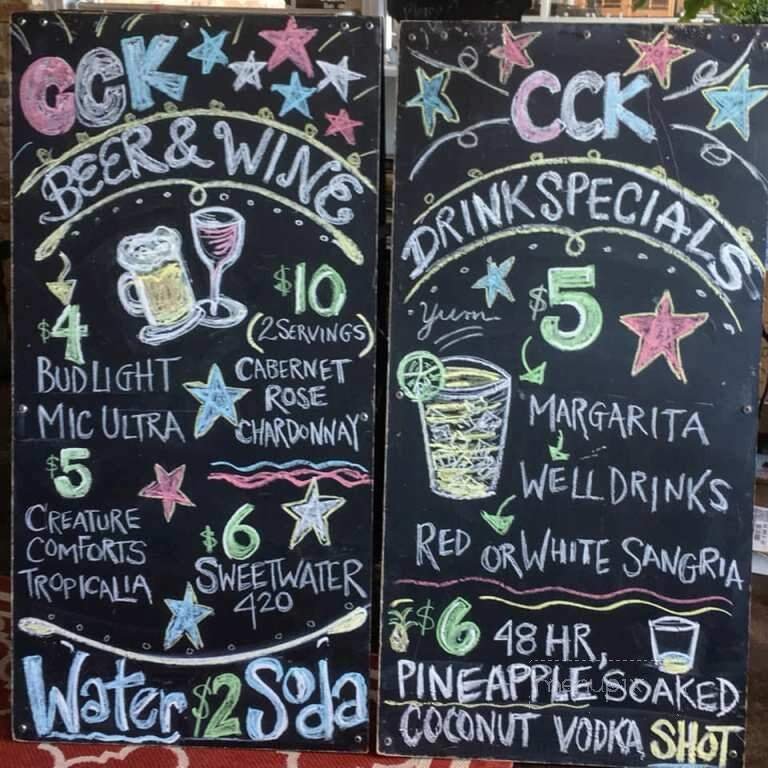 CCK
BEER & WINE
$4
BUD LIGHT
MIC ULTRA
$10
(2 SERVINGS)
CABERNET
ROSE
CHARDONNAY
$5
CREATURE
COMFORTS
TROPICALIA
$6
SWEETWATER
420
Water $2 Soda
CCK
DRINK SPECIALS
Yum
$5
MARGARITA
WELL DRINKS
RED OR WHITE SANGRIA
$6 48 HR,
PINEAPPLE SOAKED
COCONUT VODKA SHOT
menupix